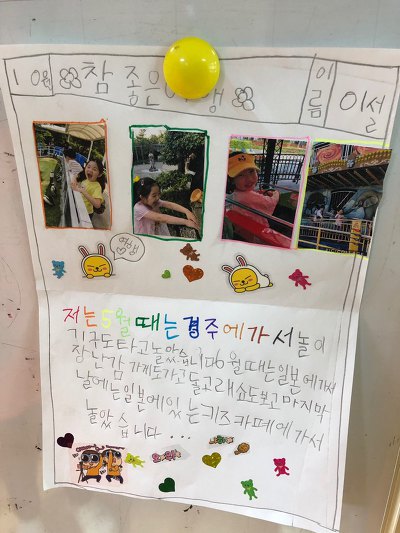 10월
참 좋은 여행
이름
이설
여행
저는 5월 때는 경주에 가서 놀이
기구도 타고 놀았습니다 6월 때는 일본에 가서
장난감 가게도 가고 돌고래쇼도 보고 마지막
날에는 일본에 있는 키즈카페에 가서
놀았습니다....